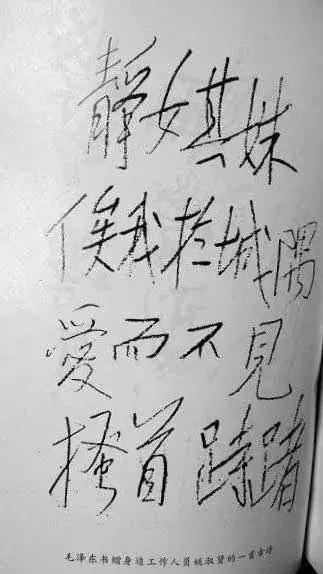 靜女其姝
俟我於城隅
愛而不見
搔首踌躇
毛泽东书赠身边工作人员姚淑贤的一首古诗